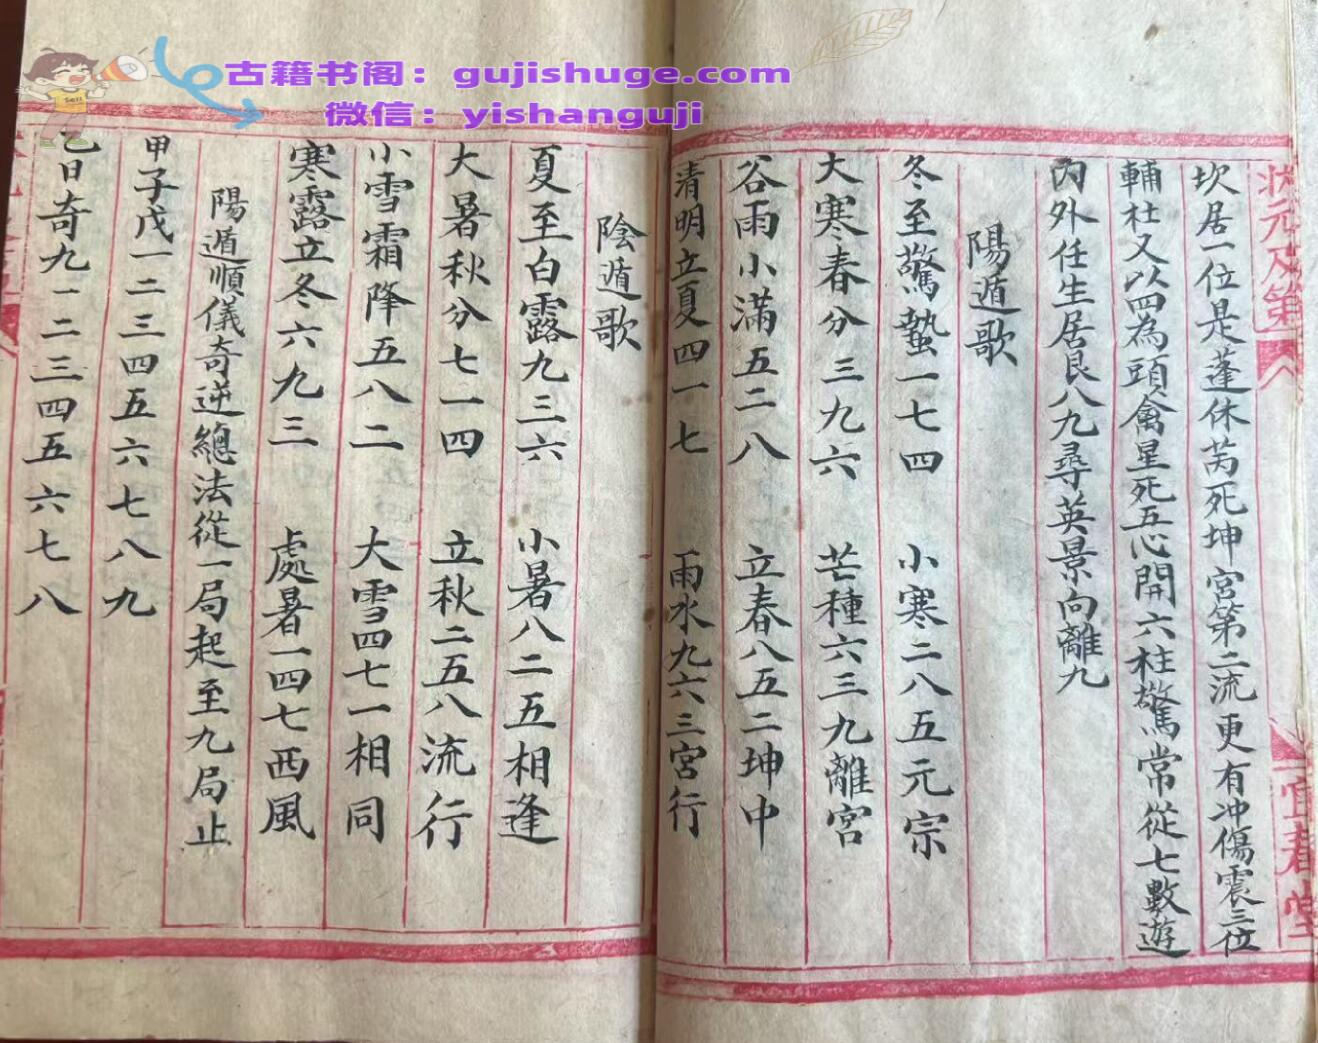 古籍书阁：gujishuge.com
微信：yishanguji
状元及第
宜春堂
坎居一位是蓬休芮死坤宮第二流更有冲傷震三位
輔杜又以四為頭禽星死五心開六柱驚常從七數遊
內外任生居艮八九尋英景向離九
陽遁歌
冬至驚蟄一七四 小寒二八五元宗
大寒春分三九六 芒種六三九離宮
谷雨小滿五二八 立春八五二坤中
清明立夏四一七 雨水九六三宮行
陰遁歌
夏至白露九三六 小暑八二五相逢
大暑秋分七一四 立秋二五八流行
小雪霜降五八二 大雪四七一相同
寒露立冬六九三 處暑一四七西風
陽遁順儀奇逆總法從一局起至九局止
甲子戊一二三四五六七八九
乙日奇九一二三四五六七八